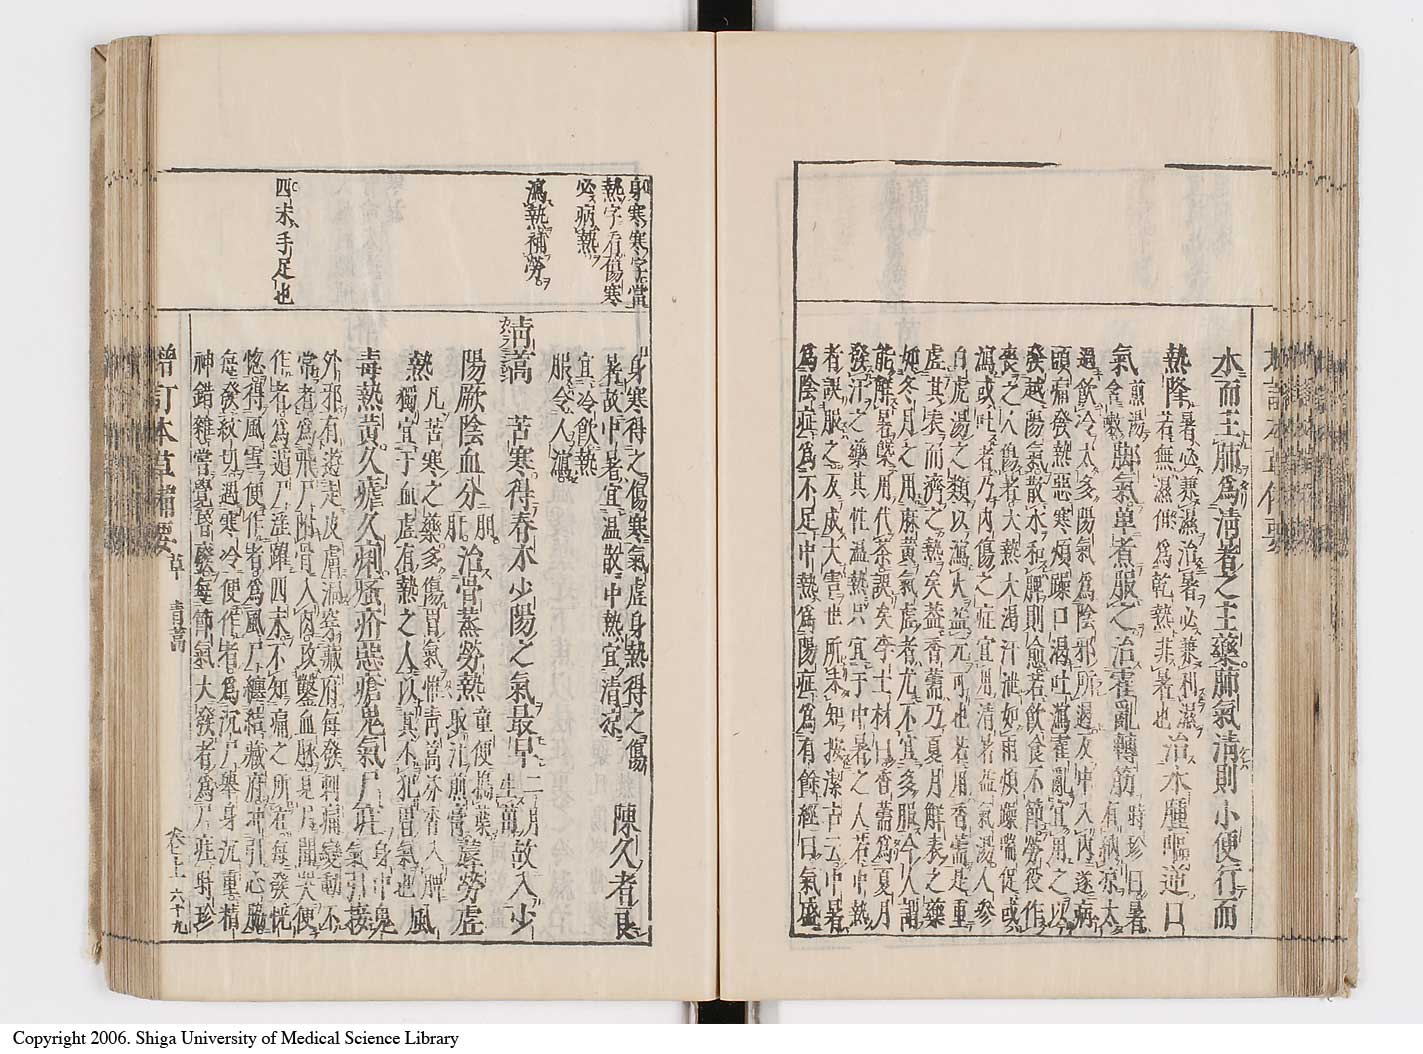 水而主肺為清者之主藥肺氣清則小便行而
熱隆暑必兼濕治暑必兼利濕
若無濕但為乾熱非暑也治水腫嘔逆口
氣煎湯
含漱脚氣單煮服之治霍亂轉筋時珍曰暑
有納涼太
過飲冷太多陽氣為陰邪所遏反中入內遂病
頭痛發熱惡寒煩躁口渴吐瀉霍亂宜用之以
發越陽氣散水和脾則愈若飲食不節勞役作
喪之人傷者大熱大渴汗泄如雨煩躁喘促或
瀉或吐者乃內傷之症宜用清暑益氣湯人參
白虎湯之類以瀉火益元可也若用香薷是重
虛其表而濟之熱矣益香薷乃夏月解表之藥
如冬月之用麻黃氣虛者尤不宜多服今人謂
能解暑槩用代茶誤矣李士材曰香薷為夏月
發汗之藥其性溫熱只宜于中暑之人若中熱
者誤服之反成大害世所未知按潔古云中暑
為陰症為不足中熱為陽症為有餘經曰氣盛
身寒寒字當
熱字看傷寒
必病熱
瀉熱補勞
四末手足也
身寒得之傷寒氣虛身熱得之傷
暑故中暑宜溫散中熱宜清涼 陳久者良
宜冷飲熱
服令人瀉
青蒿 苦寒得春木少陽之氣最早二月
生苗故入少
陽厥陰血分胆
肝治骨蒸勞熱童便搗葉
取汁煎膏蓐勞虛
熱凡苦寒之藥多傷胃氣惟青蒿芬香入脾
獨宜于血虛有熱之人以其不犯胃氣也風
毒熱黃久瘧久痢瘙疥惡瘡鬼氣尸疰身中鬼
氣引接
外邪有遊走皮膚洞穿藏府每發刺痛變動不
常者為飛尸附骨入肉攻鑿血脉見尸聞哭便
作者為遁尸淫躍四末不知痛之所在每發恍
惚得風雪便作者為風尸纏結藏府冲引心脇
每發絞切遇寒冷便作者為沉尸舉身沉重精
神錯雜嘗覺昏廢每節氣大發者為尸疰時珍
增訂本草備要 草 青蒿 卷上 六十九
Copyright 2006. Shiga University of Medical Science Library